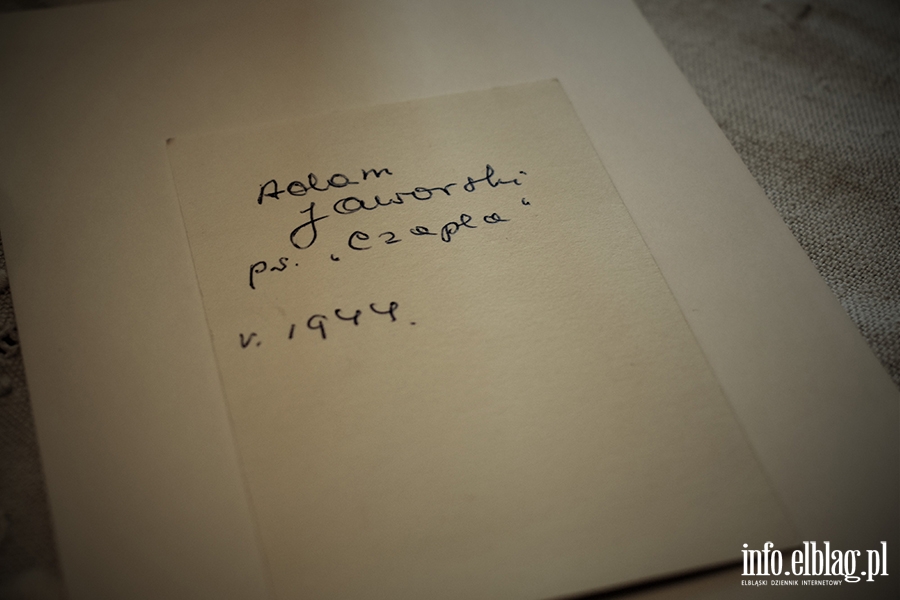 Adam
Jaworski
ps. „Czapla"
r. 1944.
info.elblag.pl
ELBLĄSKI DZIENNIK INTERNETOWY